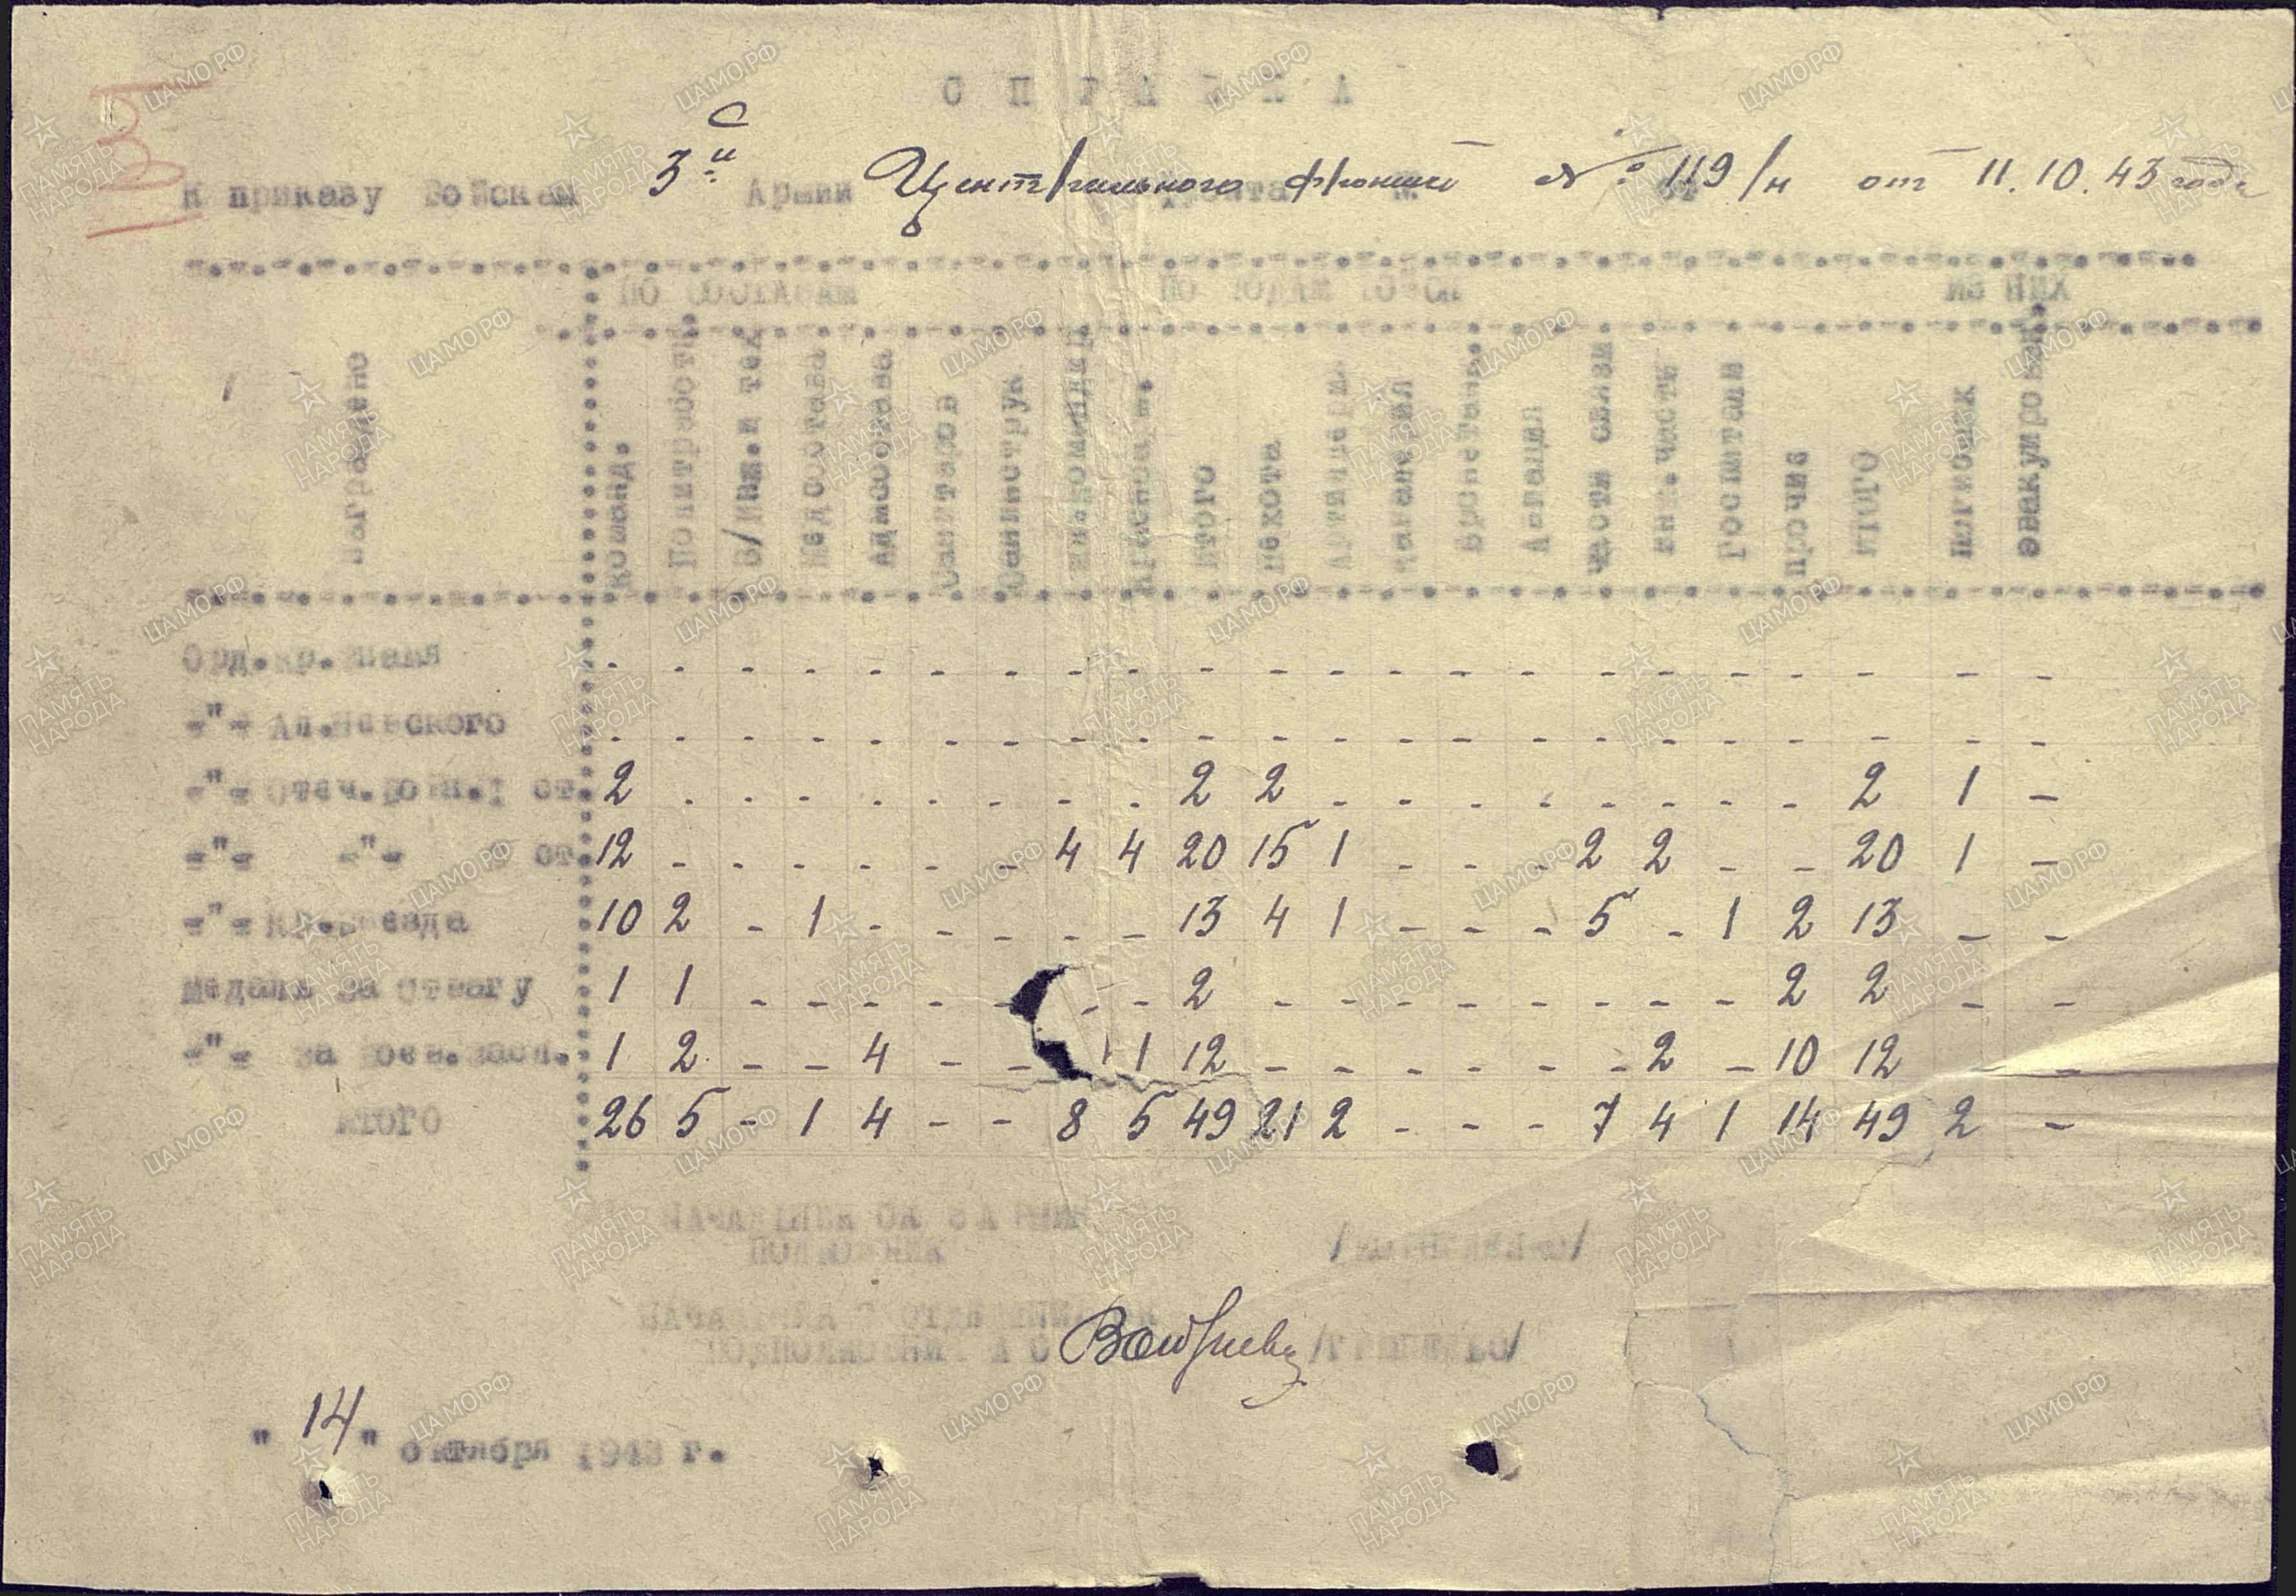 С П Р А В К А
К приказу войскам 3й Армии Центрального фронта № 119/н от 11.10.43 года
ПО СОСТАВАМ ПО РОДАМ ВОЙСК ИЗ НИХ
Награждено Команд. Политработн. В/инж. и тех Медсостава Адмсостава Итого Пехота Артиллерия Кавалерия Авиация Части связи инж. части Госпитали прочие ИТОГО Погибших эвакуирован.
Орд.кр.знамя - - - - - - - - - - - - - - - - - - - - - -
-"- Ал.Невского - - - - - - - - - - - - - - - - - - - - - -
-"- Отеч.войн.1 ст. 2 - - - - - - - - 2 2 - - - - - - - - 2 1 -
-"- -"- ст. 12 - - - - - - 4 4 20 15 1 - - - 2 2 - - 20 1 -
-"- Кр.звезда 10 2 - 1 - - - - - 13 4 1 - - - 5 - 1 2 13 - -
Медаль за отвагу 1 1 - - - - - - 2 - - - - - - - - 2 2 - -
-"- за боев.засл. 1 2 - - 4 - - 1 12 - - - - - - 2 - 10 12 - -
ИТОГО 26 5 - 1 4 - - 8 5 49 21 2 - - - 7 4 1 14 49 2 -
НАЧАЛЬНИК ОК 3 АРМИИ
ПОЛКОВНИК
НАЧАЛЬНИК ОТДЕЛЕНИЯ
ПОДПОЛКОВНИК А С
"14" октября 1943 г.
ЦАМО.РФ
ПАМЯТЬ НАРОДА